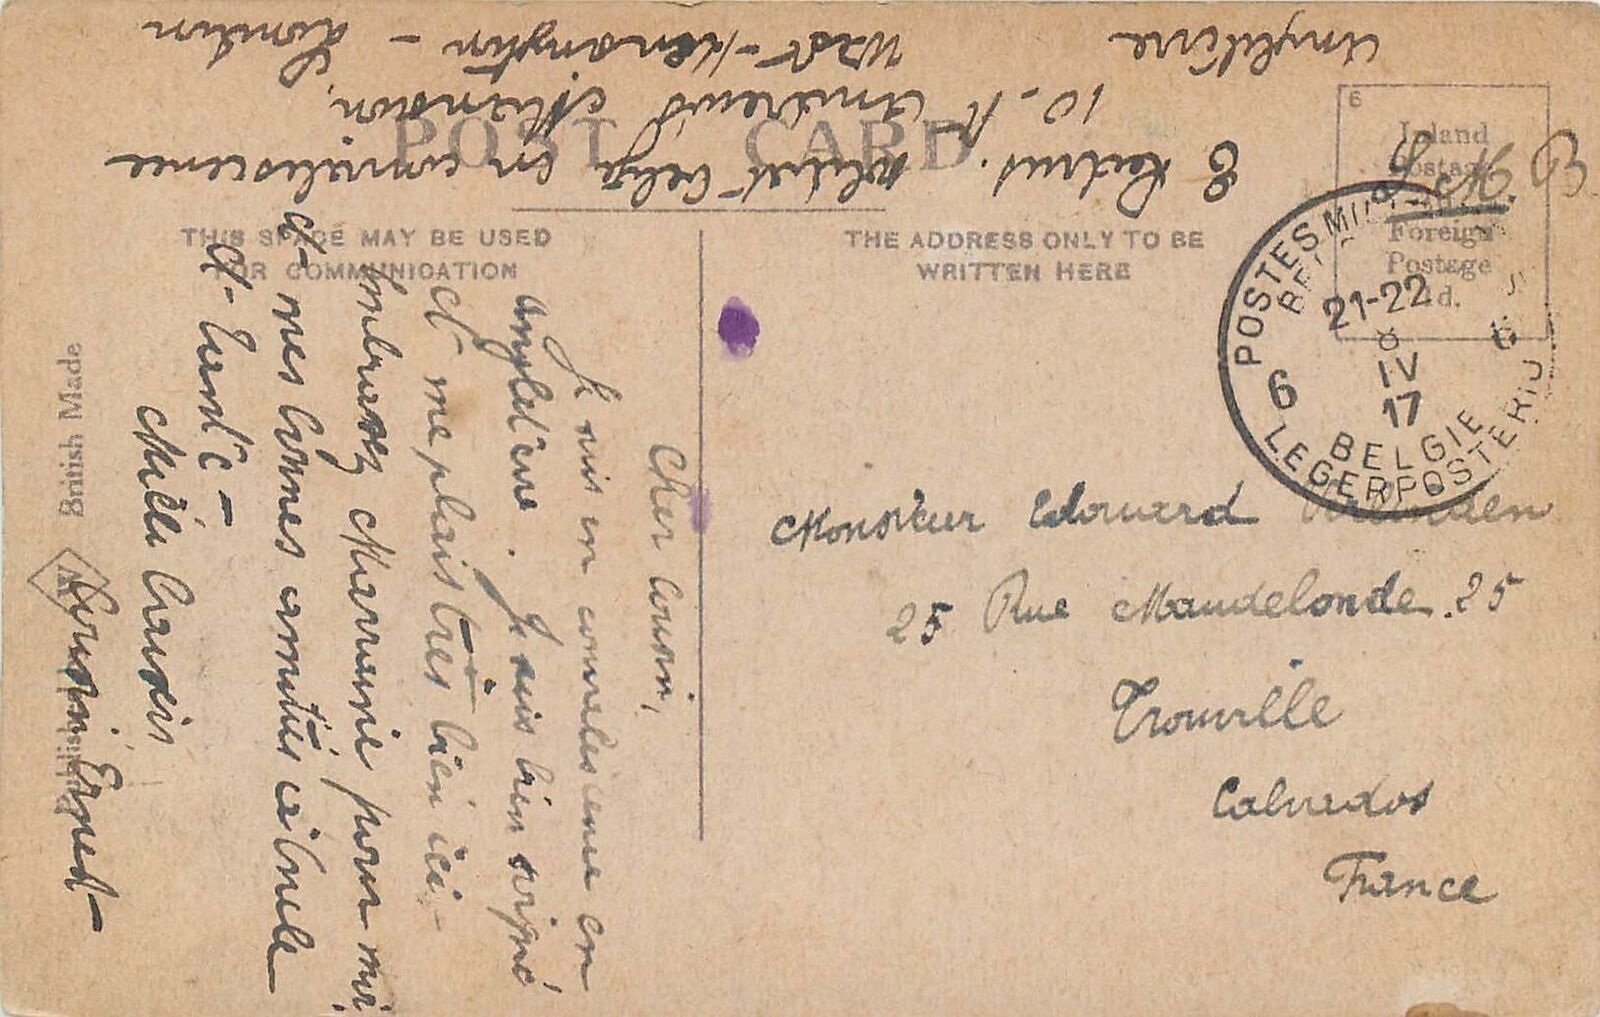 POST CARD
THIS SPACE MAY BE USED
FOR COMMUNICATION
THE ADDRESS ONLY TO BE
WRITTEN HERE
6
Inland
Postage
Foreign
Postage
1d.
S.M.
E
soldat belge en convalescence
10 - St Andrews Mansion,
West-Kensington - London
Angleterre
POSTES MILITAIRES
21-22
8
IV
17
6
6
BELGIE
LEGERPOSTERIJ
Cher Cousin,
Je suis en convalescence en
Angleterre. Je suis bien soigné
et me plais très bien ici -
Embrassez Marraine pour moi
et mes bonnes amitiés à Oncle
et
Mille baisers
Cousin Ernest
Monsieur Edouard
25 Rue Maudelonde. 25
Trouville
Calvados
France
British Made
Published